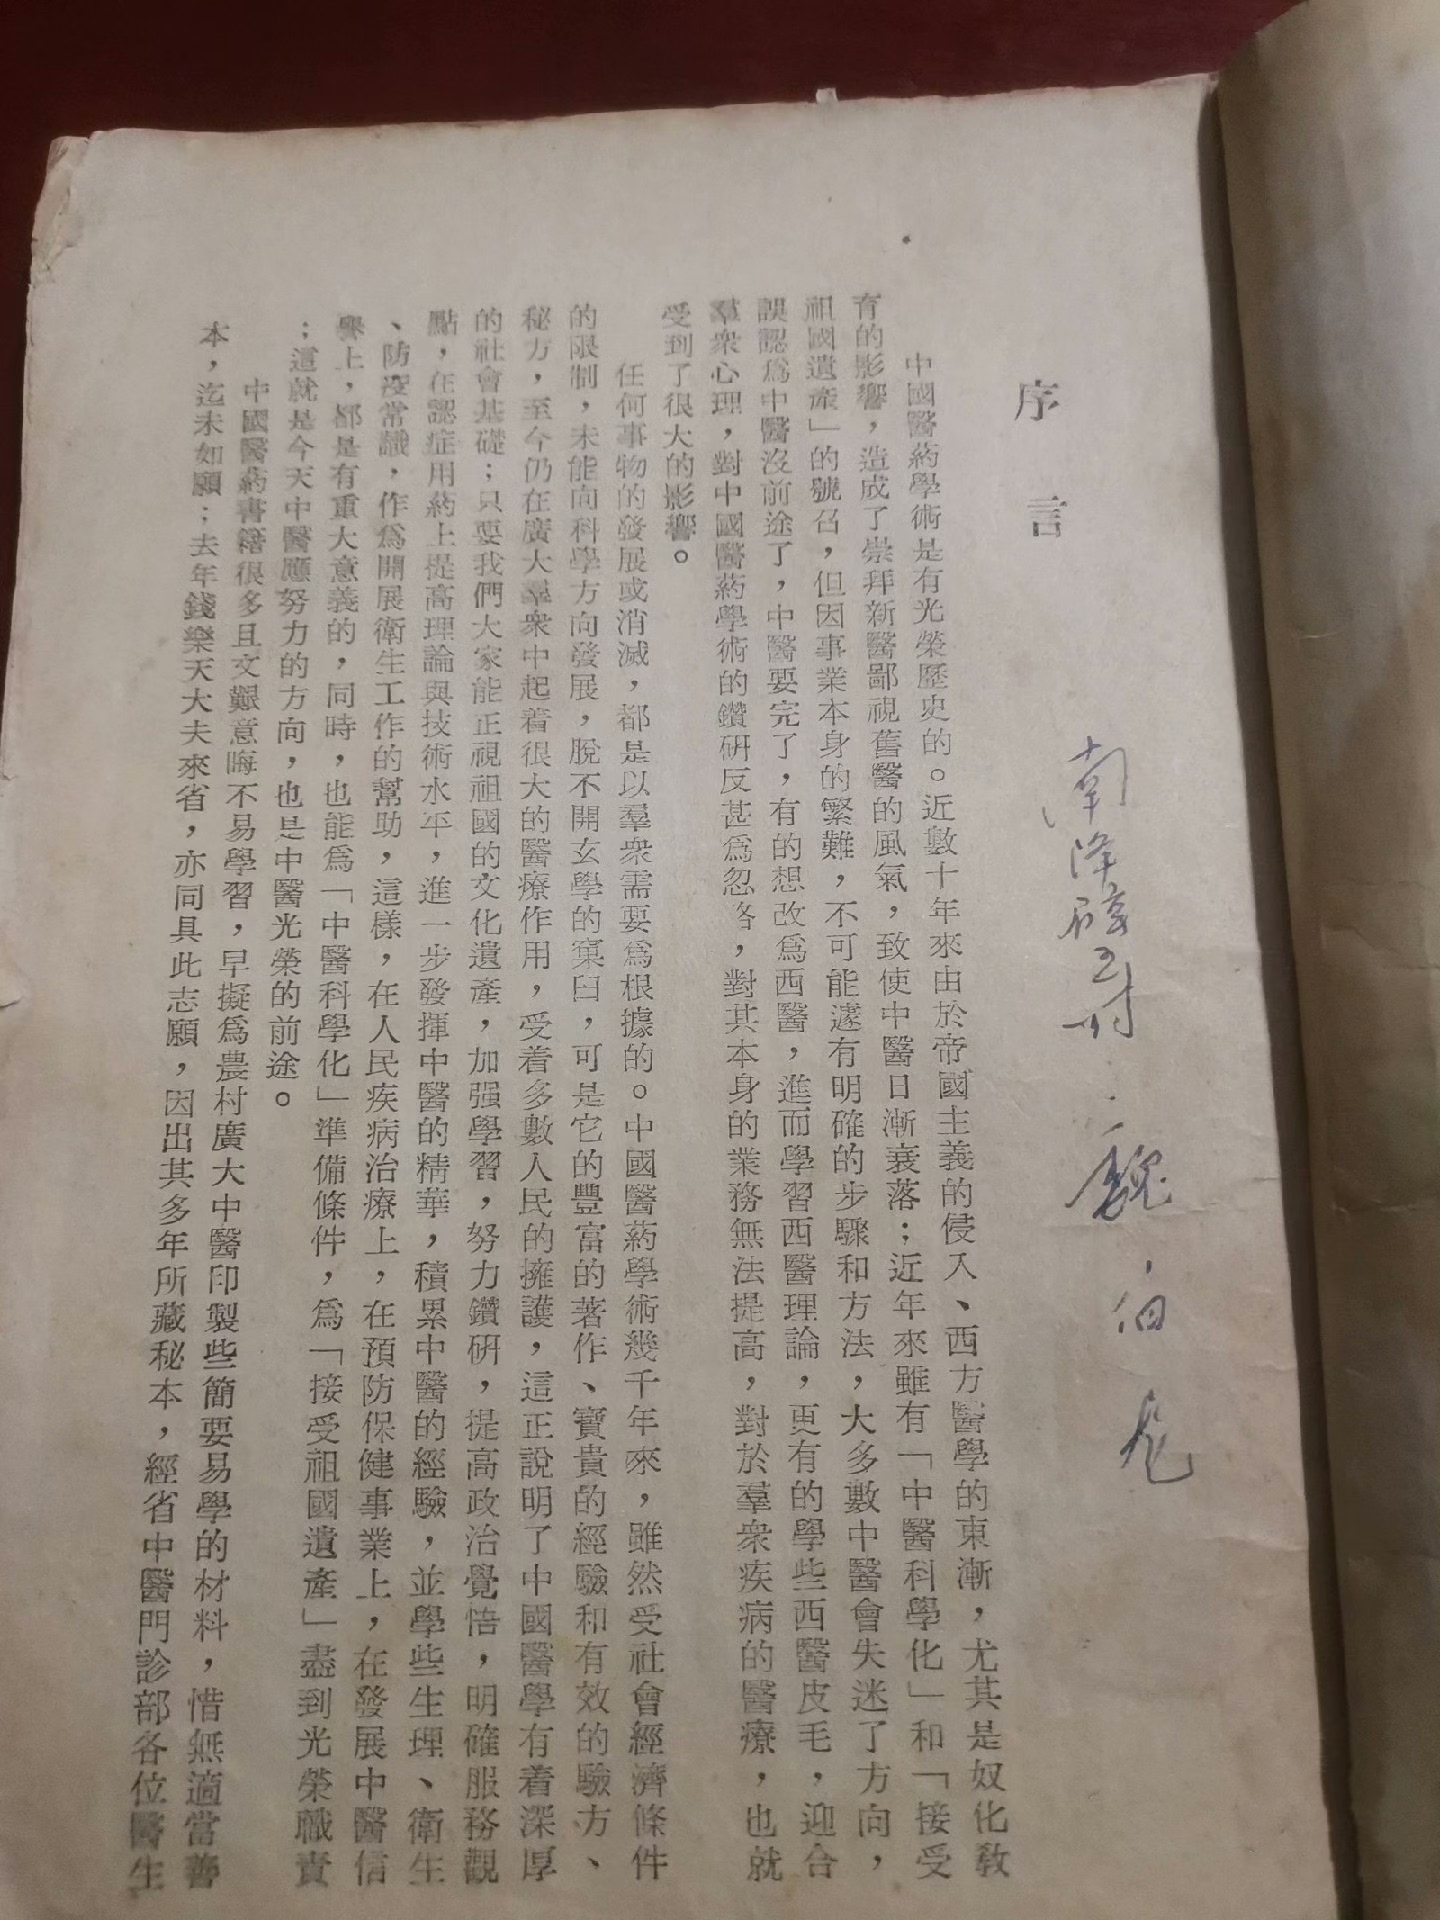 序言
魏
中國醫葯學術是有光榮歷史的。近數十年來由於帝國主義的侵入、西方醫學的東漸,尤其是奴化敎
有的影響,造成了崇拜新醫鄙視舊醫的風氣,致使中醫日漸衰落;近年來雖有「中醫科學化」和「接受
祖國遺產」的號召,但因事業本身的繁難,不可能遽有明確的步驟和方法,大多數中醫會失迷了方向,
誤認爲中醫沒前途了,中醫要完了,有的想改爲西醫,進而學習西醫理論,更有的學些西醫皮毛,迎合
羣衆心理,對中國醫葯學術的鑽研反甚爲忽畧,對其本身的業務無法提高,對於羣衆疾病的醫療,也就
受到了很大的影響。
任何事物的發展或消滅,都是以羣衆需要爲根據的。中國醫葯學術幾千年來,雖然受社會經濟條件
的限制,未能向科學方向發展,脫不開玄學的窠臼,可是它的豐富的著作、寶貴的經驗和有效的驗方、
秘方,至今仍在廣大羣衆中起着很大的醫療作用,受着多數人民的擁護,這正說明了中國醫學有着深厚
的社會基礎;只要我們大家能正視祖國的文化遺產,加强學習,努力鑽研,提高政治覺悟,明確服務觀
點,在認症用葯上提高理論與技術水平,進一步發揮中醫的精華,積累中醫的經驗,並學些生理、衛生
、防疫常識,作爲開展衛生工作的幫助,這樣,在人民疾病治療上,在預防保健事業上,在發展中醫信
譽上,都是有重大意義的,同時,也能爲「中醫科學化」準備條件,爲「接受祖國遺產」盡到光榮職責
;這就是今天中醫應努力的方向,也是中醫光榮的前途。
中國醫葯書籍很多且文艱意晦不易學習,早擬爲農村廣大中醫印製些簡要易學的材料,惜無適當善
本,迄未如願;去年錢樂天大夫來省,亦同具此志願,因出其多年所藏秘本,經省中醫門診部各位醫生